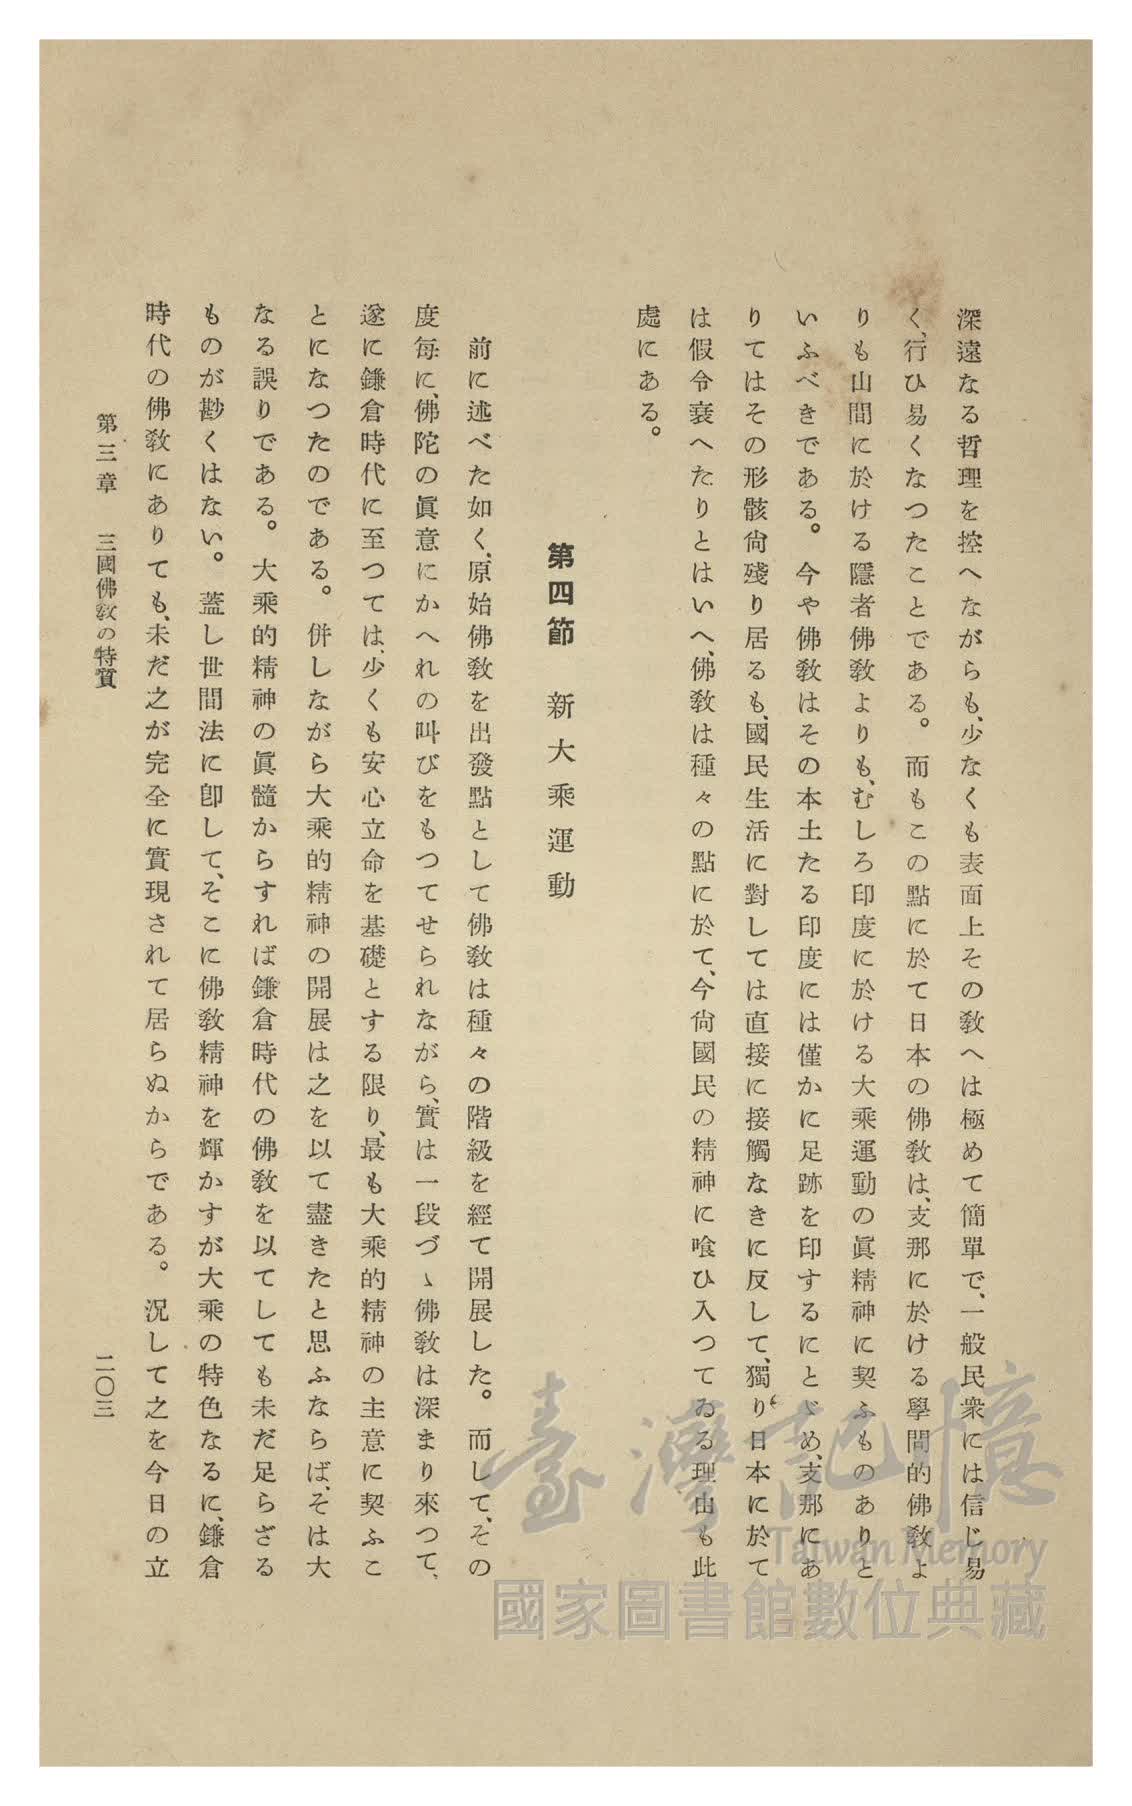 深遠なる哲理を控へながらも、少なくも表面上その敎へは極めて簡單で、一般民衆には信じ易
く、行ひ易くなつたことである。而もこの點に於て日本の佛敎は、支那に於ける學問的佛敎よ
りも山間に於ける隱者佛敎よりも、むしろ印度に於ける大乘運動の眞精神に契ふものありと
いふべきである。今や佛敎はその本土たる印度には僅かに足跡を印するにとゞめ、支那にあ
りてはその形骸尙殘り居るも、國民生活に對しては直接に接觸なきに反して、獨り日本に於て
は假令衰へたりとはいへ、佛敎は種々の點に於て、今尙國民の精神に喰ひ入つてゐる理由も此
處にある。
第四節　新大乘運動
前に述べた如く、原始佛敎を出發點として佛敎は種々の階級を經て開展した。而して、その
度每に、佛陀の眞意にかへれの叫びをもつてせられながら、實は一段づゝ佛敎は深まり來つて、
遂に鎌倉時代に至つては、少くも安心立命を基礎とする限り、最も大乘的精神の主意に契ふこ
とになつたのである。併しながら大乘的精神の開展は之を以て盡きたと思ふならば、そは大
なる誤りである。大乘的精神の眞髓からすれば鎌倉時代の佛敎を以てしても未だ足らざる
ものが尠くはない。蓋し世間法に卽して、そこに佛敎精神を輝かすが大乘の特色なるに、鎌倉
時代の佛敎にありても、未だ之が完全に實現されて居らぬからである。況して之を今日の立
第三章　三國佛敎の特質　二〇三
臺灣記憶
Taiwan Memory
國家圖書館數位典藏